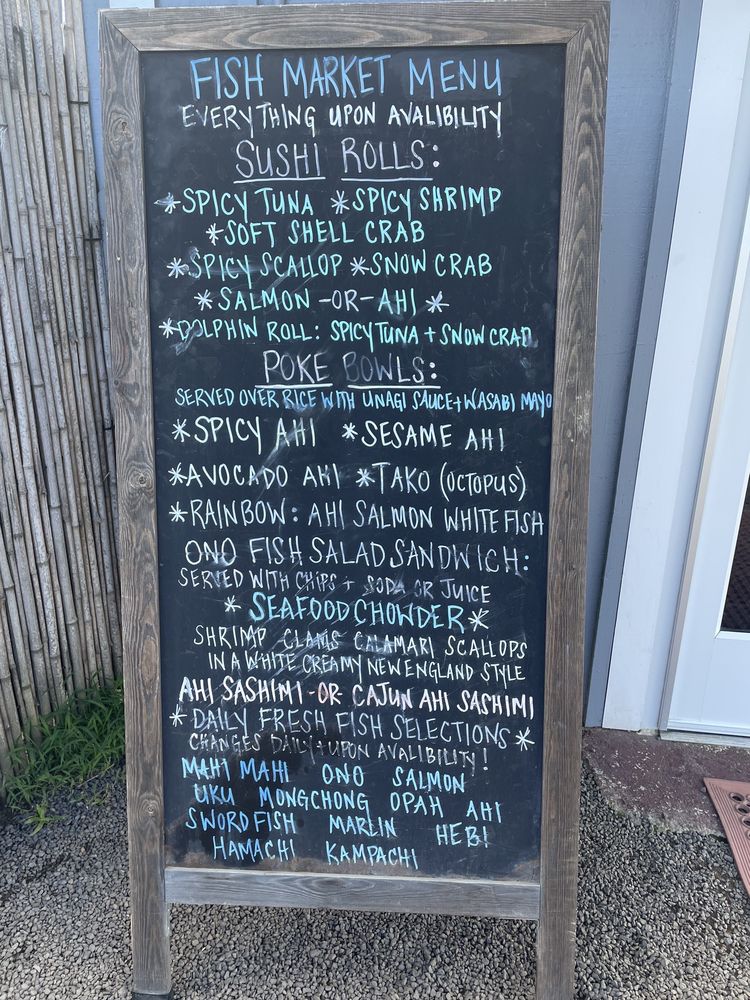 FISH MARKET MENU
EVERYTHING UPON AVALIBILITY
SUSHI ROLLS:
*SPICY TUNA *SPICY SHRIMP
*SOFT SHELL CRAB
*SPICY SCALLOP *SNOW CRAB
*SALMON -OR- AHI *
*DOLPHIN ROLL: SPICY TUNA + SNOW CRAB
POKE BOWLS:
SERVED OVER RICE WITH UNAGI SAUCE + WASABI MAYO
*SPICY AHI *SESAME AHI
*AVOCADO AHI *TAKO (OCTOPUS)
*RAINBOW: AHI SALMON WHITE FISH
ONO FISH SALAD SANDWICH:
SERVED WITH CHIPS + SODA OR JUICE
* SEAFOOD CHOWDER *
SHRIMP CLAMS CALAMARI SCALLOPS
IN A WHITE CREAMY NEW ENGLAND STYLE
AHI SASHIMI -OR- CAJUN AHI SASHIMI
* DAILY FRESH FISH SELECTIONS *
CHANGES DAILY + UPON AVALIBILITY!
MAHI MAHI ONO SALMON
UKU MONGCHONG OPAH AHI
SWORDFISH MARLIN HEBI
HAMACHI KAMPACHI